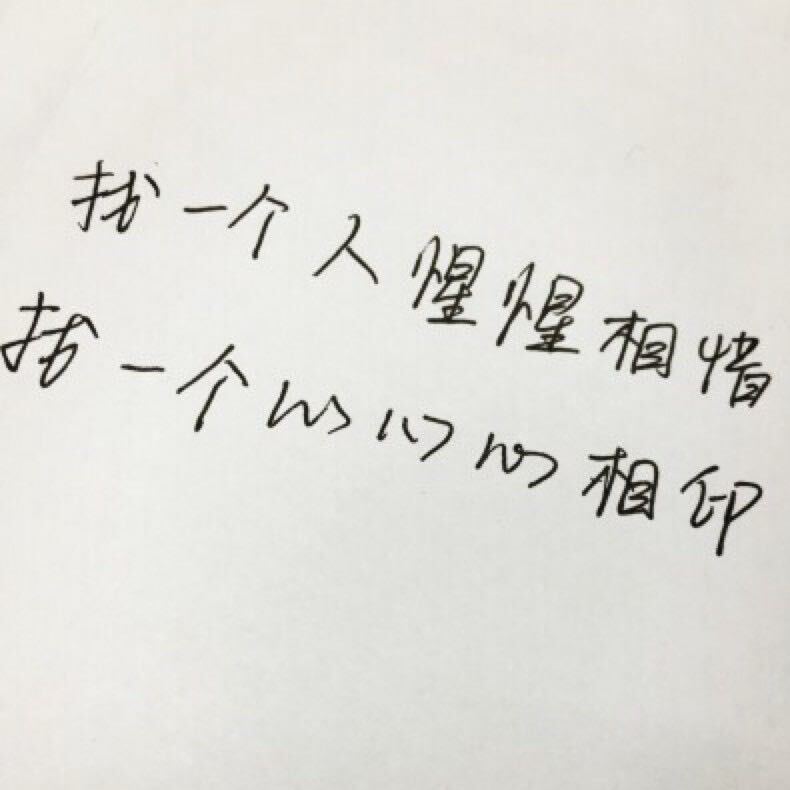 找一个人惺惺相惜
找一个心心心相印